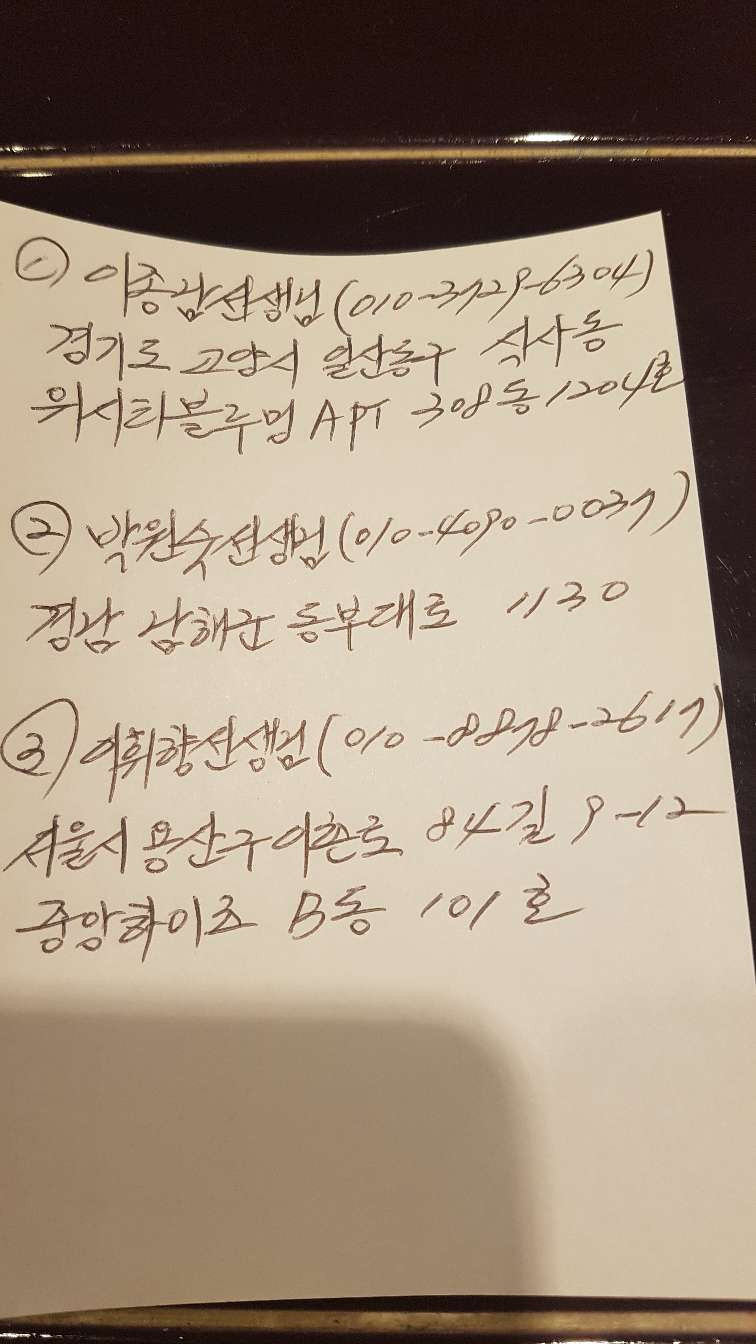 ① 이종남선생님 (010-3729-6304)
경기도 고양시 일산동구 식사동
위시티블루밍 APT 308동 1204호
② 박원숙선생님 (010-4090-0037)
경남 남해군 동부대로 1130
③ 이휘향선생님 (010-8878-2617)
서울시 용산구 이촌로 84길 9-12
중앙하이츠 B동 101호